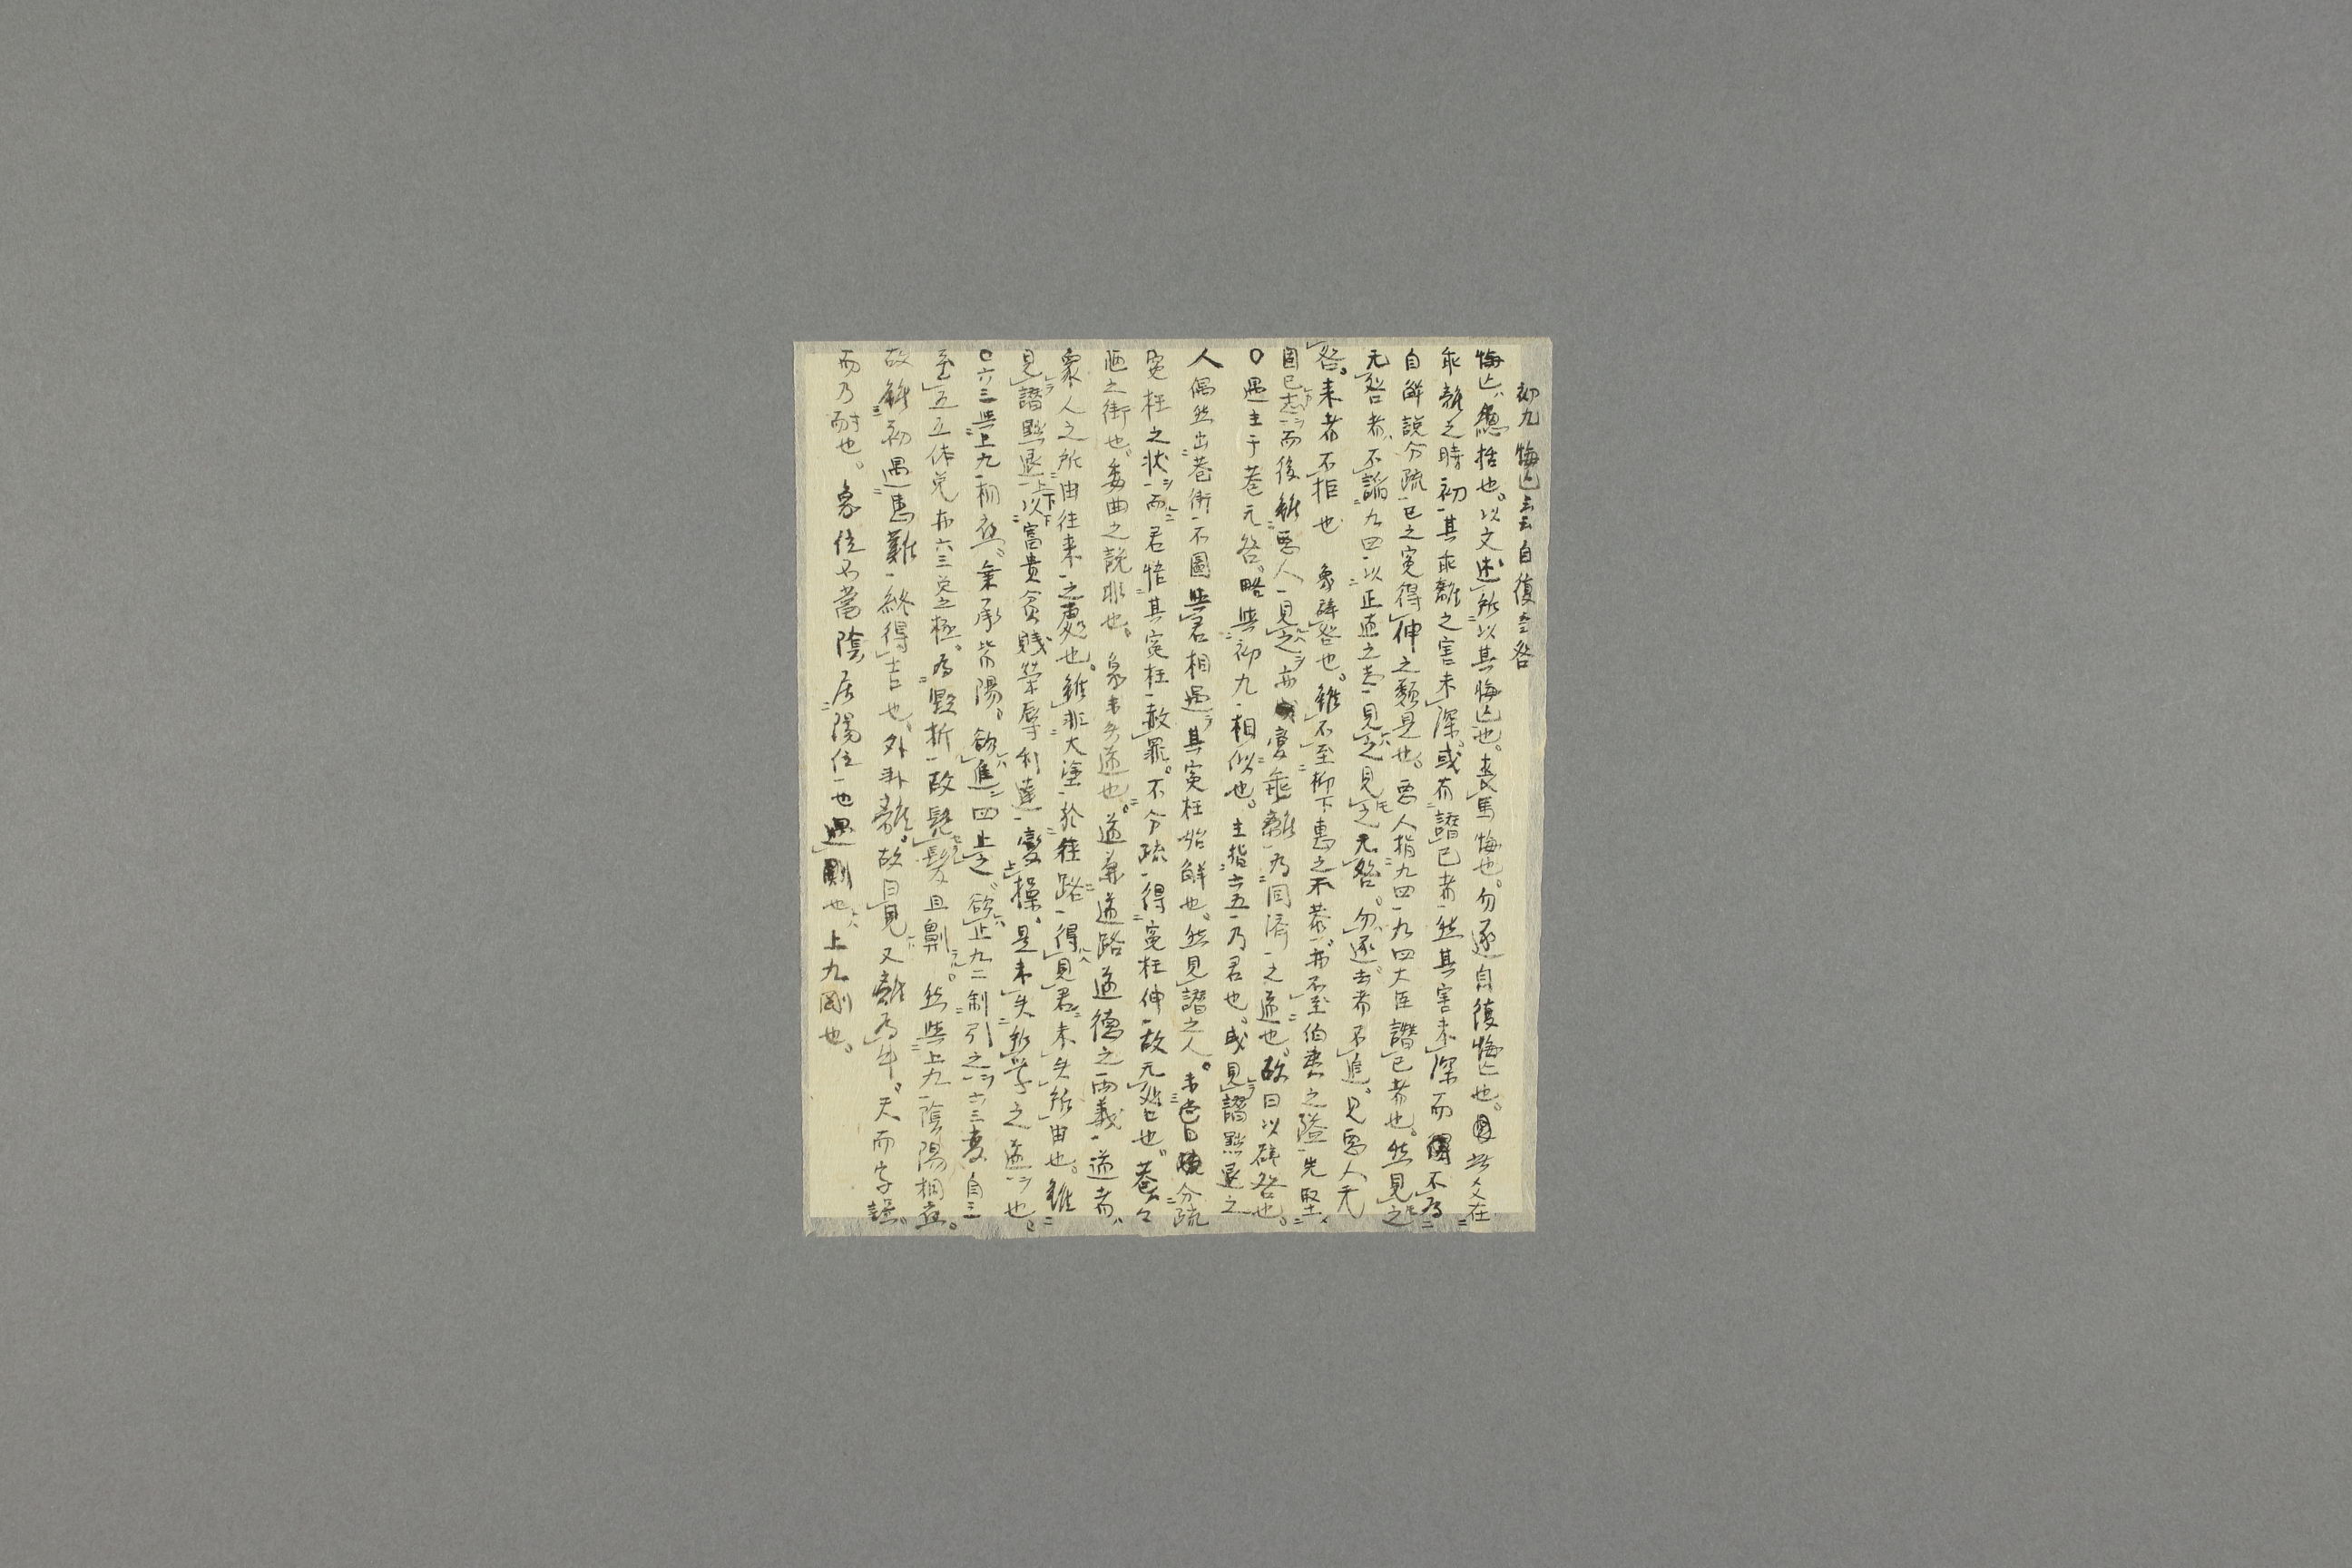 初九悔亡云云自復云咎
悔亡、總括也。以文述所以其悔亡也。喪馬悔也。勿逐自復悔亡也。此爻在
乖離之時初其乖離之害未深。或有譖己者、然其害未深而不為
自解説分疏己之寃得伸之類是也。惡人指九四、九四大臣譖己者也。然見之
无咎者、不諂九四以正道之志見之、見之无咎。勿逐去者不追。見惡人无
咎。来者不拒也 象辟咎也。雖不至柳下惠之不恭、亦不至伯夷之隘、先堅
固己志而後雖惡人見之、亦變乖離為同済之道也。故曰以辟咎也。
○遇主于巷无咎。略與初九相似也。主指六五乃君也。或見譖黜退之
人偶然出巷街不圖與君相遇、其寃枉始解也。然見譖之人。未自分疏
寃枉之状而君悟其寃枉赦罪。不分疏得寃枉伸故无咎也。巷
陋之街也、委曲之説非也。 象未失道也。道兼道路道德之両義、道者、
衆人之所由往来之處也。雖非大塗於径路得見君未失所由也。雖
見譖黜退以富貴貧賤榮辱利達變操、是未失所学之道也。
○六三與上九相應、乗承皆陽。欲進四止之、欲止九二制引之、六三變自三
至五互体兌亦六三兌之極。為毀折故髡髮且劓 然與上九陰陽相應。
故雖初遇馬難終得吉也。外卦離。故曰見又離為牛。天而字誤。
而乃耐也。象位不當陰居陽位也遇剛也上九剛也。